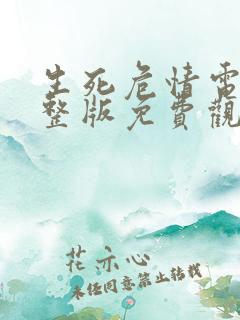 生死危情電
整版免費觀
花亦心
未经同意禁止转载